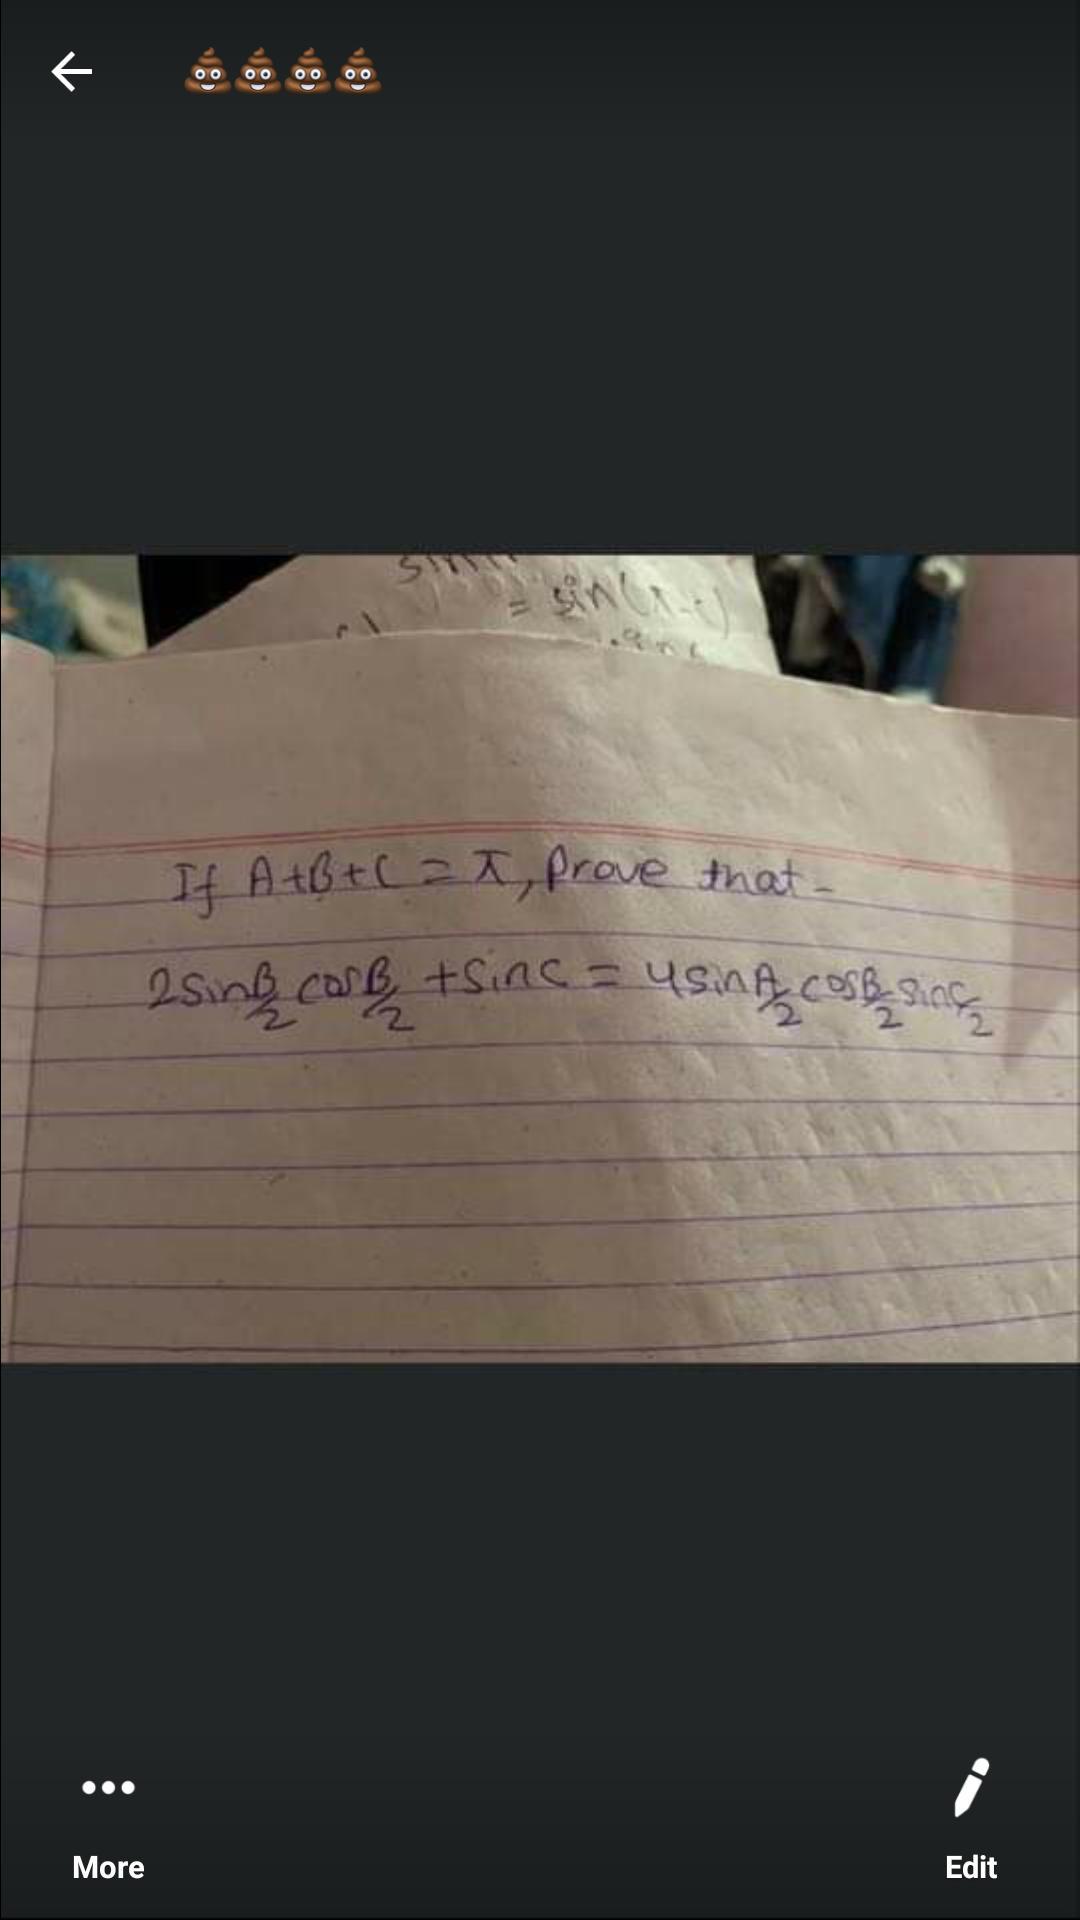 💩💩💩💩
= sin(π-
If A+B+C = π, Prove that -
2sinB/2 cosB/2 + sinC = 4sinA/2 cosB/2 sinC/2
More
Edit